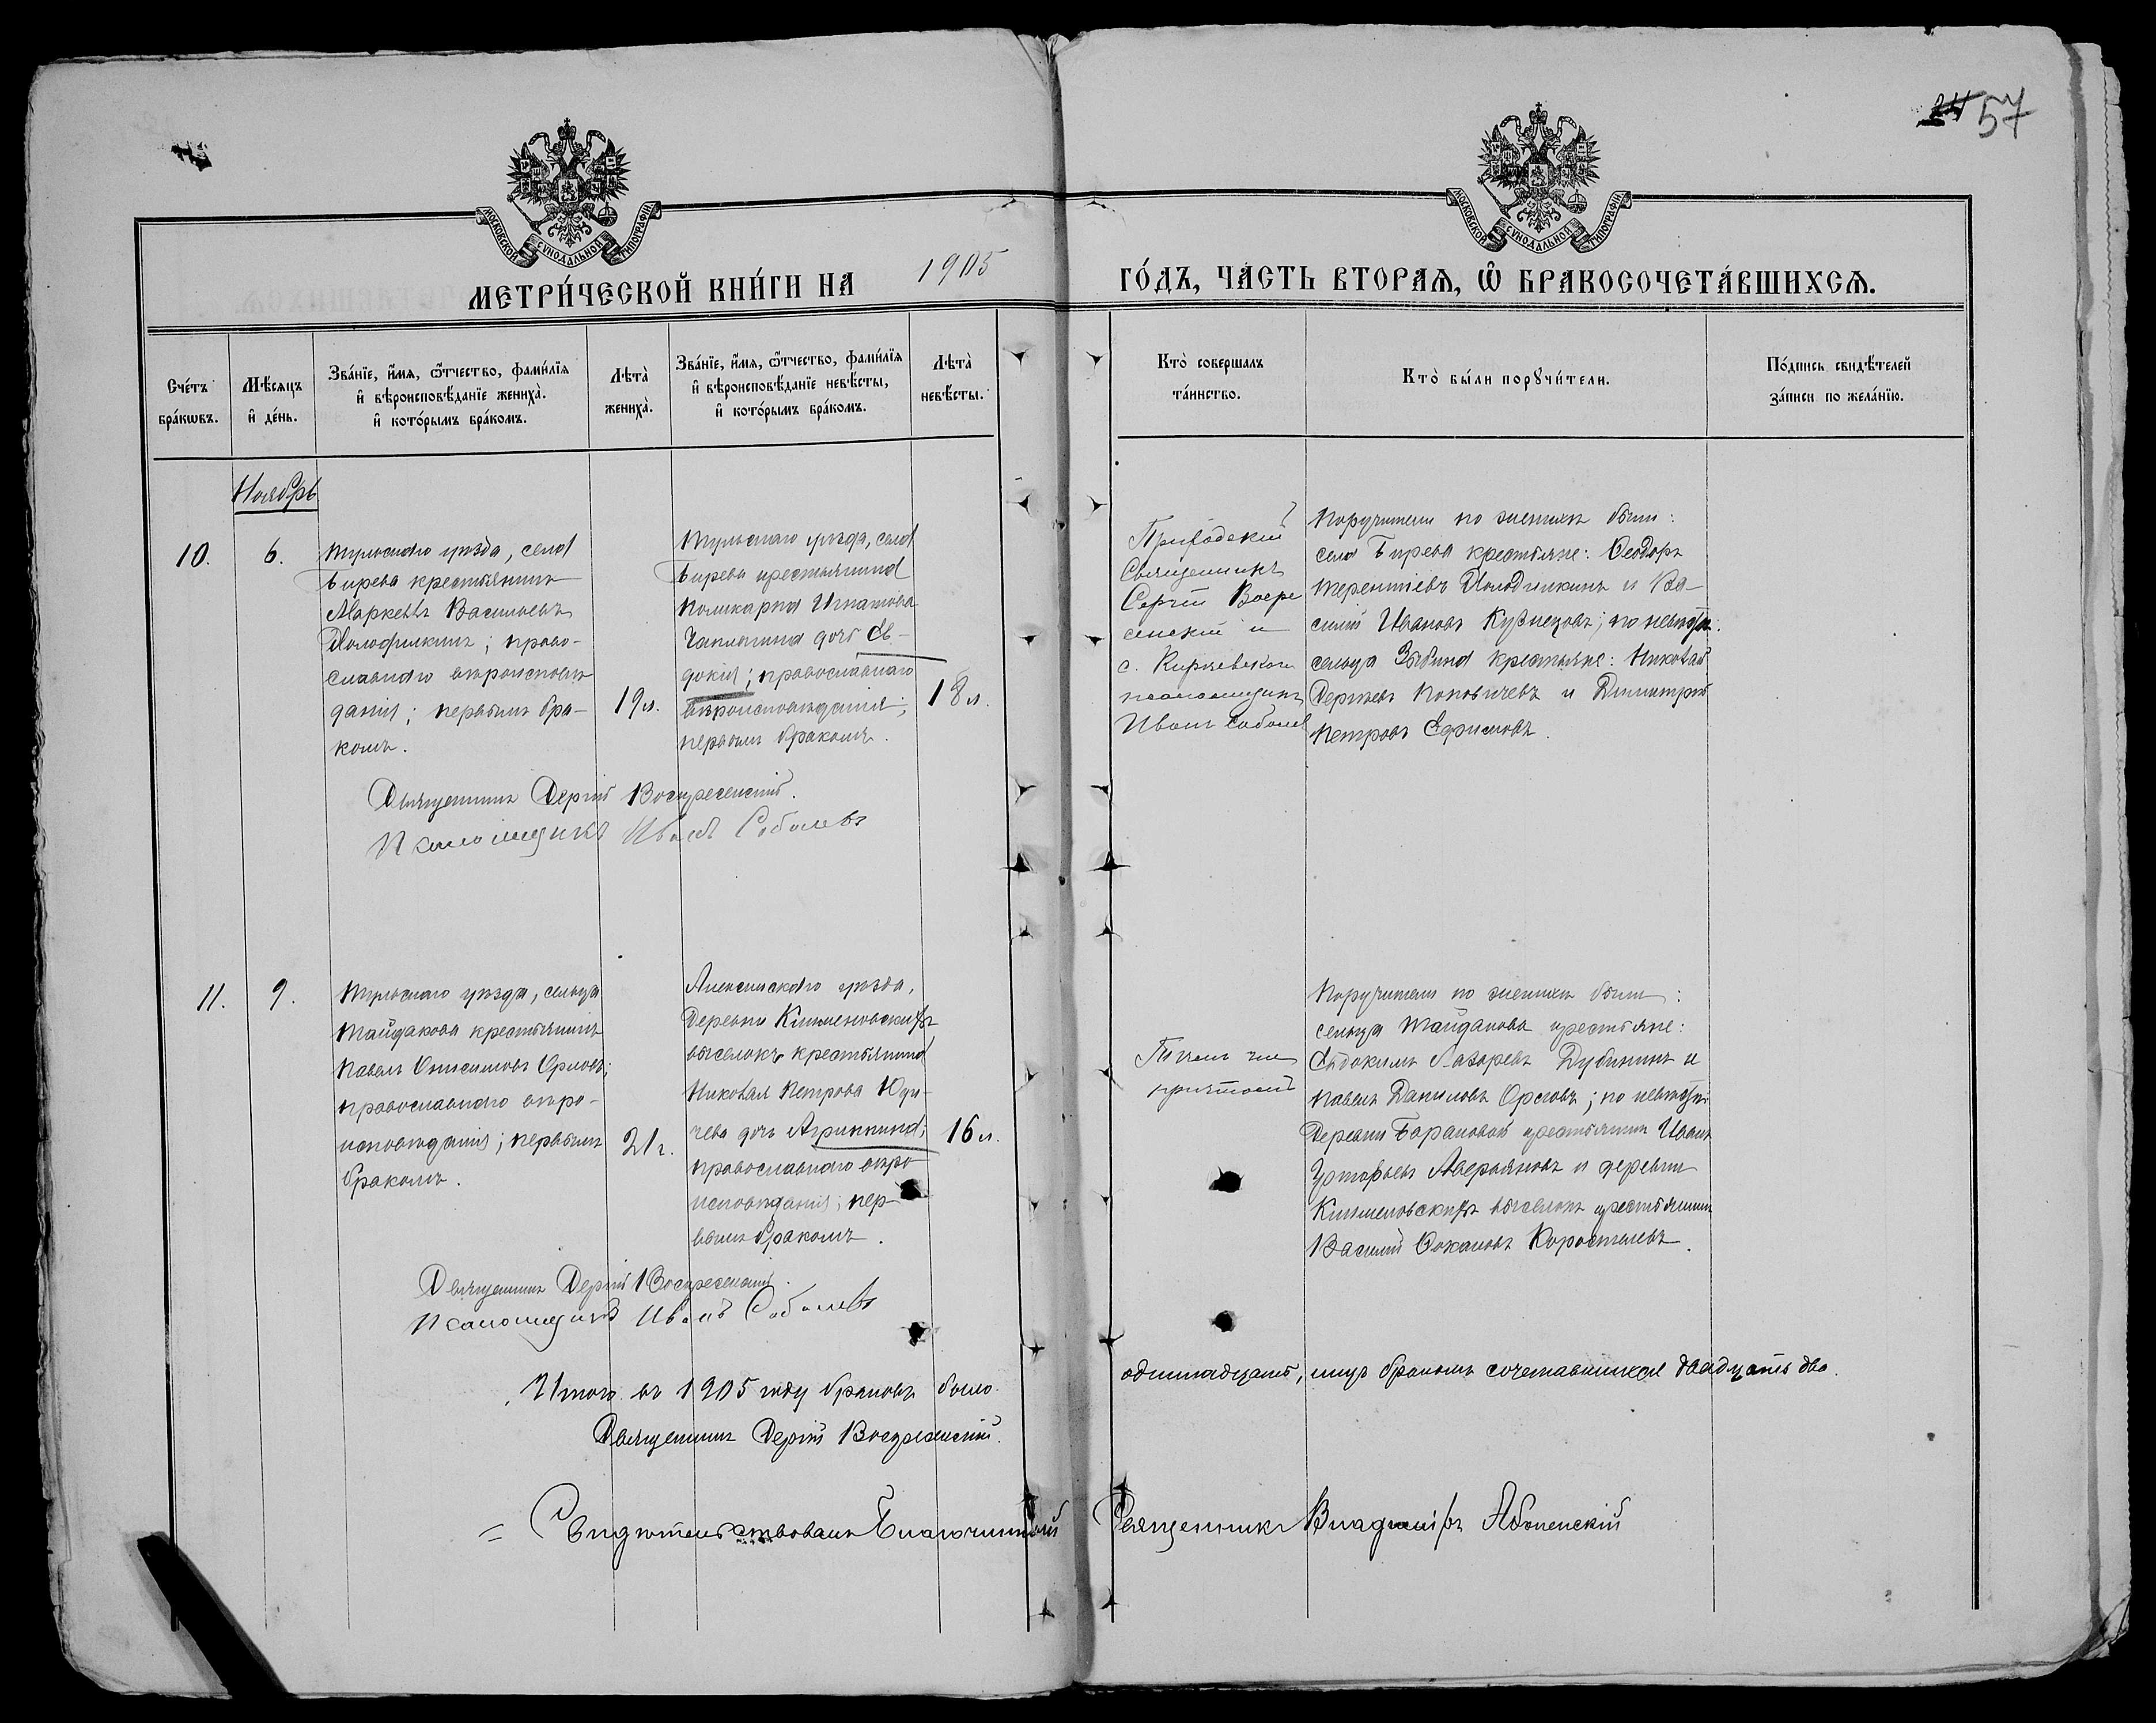 57
МОСКОВСКОЙ СѴНОДАЛЬНОЙ ТИПОГРАФІИ.
МОСКОВСКОЙ СѴНОДАЛЬНОЙ ТИПОГРАФІИ.
МЕТРИ́ЧЕСКОЙ КНИ́ГИ НА 1905 ГО́ДЪ, ЧА́СТЬ ВТОРАѦ, Ѡ҆ БРАКОСОЧЕТА́ВШИХСѦ.
Сче́тъ
бра́кѡвъ.
Мѣ́сяцъ
и҆ де́нь.
Зва́нїе, и҆́мя, ѻ҆́тчество, фами́лїя
и҆ вѣроисповѣ́данїе жениха̀.
и҆ кото́рымъ бра́комъ.
Лѣта̀
жениха̀.
Зва́нїе, и҆́мя, ѻ҆́тчество, фами́лїя
и҆ вѣроисповѣ́данїе невѣ́сты,
и҆ кото́рымъ бра́комъ.
Лѣта̀
невѣ́сты.
Кто̀ соверша́лъ
та́инство.
Кто̀ бы́ли порꙋчи́тели.
По́дпись свидѣ́телей
за́писи по жела́нїю.
Ноябрь
10.
6.
Тульскаго уѣзда, села
Бирева крестьянинъ
Маркеллъ Васильевъ
Холодилкинъ; право-
славнаго вѣроисповѣ
данія; первымъ бра-
комъ.
19 л.
Тульскаго уѣзда, села
Бирева крестьянина
Поликарпа Игнатова
Чаплыгина дочь Ев-
докія; православнаго
вѣроисповѣданія;
первымъ бракомъ.
18 л.
Приходскій
Священникъ
Сергій Воскре
сенскій и
с.
псаломщикъ
Иванъ Соболев
Поручители по женихѣ были:
села Бирева крестьяне: Ѳеодоръ
Терентіевъ Холодилкинъ и Ва-
силій Ивановъ Кузнецовъ; по невѣстѣ:
сельца Зыбина крестьяне: Николай
Сергѣевъ Поповичевъ и Димитрій
Петровъ Ефимовъ.
Священникъ Сергій Воскресенскій.
Псаломщикъ Иванъ Соболевъ
11.
9.
Тульскаго уѣзда, сельца
Тайдакова крестьянинъ
Павелъ Онисимовъ Орловъ;
православнаго вѣро-
исповѣданія; первымъ
бракомъ.
21 г.
Алексинскаго уѣзда,
деревни Клименовскихъ
выселокъ крестьянина
Николая Петрова Юди-
чева дочь Агриппина;
православнаго вѣро
исповѣданія; пер-
вымъ бракомъ.
16 л.
Тѣмъ же
причтомъ
Поручители по женихѣ были:
сельца Тайдакова крестьяне:
Евдокимъ Лазаревъ Дубининъ и
Павелъ Даниловъ Орловъ; по невѣстѣ:
деревни Барановой крестьянинъ Иванъ
Аверьяновъ и деревни
Клименовскихъ выселокъ крестьянинъ
Василій Коростелевъ.
Священникъ Сергій Воскресенскій.
Псаломщикъ Иванъ Соболевъ
Итого въ 1905 году браковъ было одиннадцать, лицъ бракомъ сочетавшихся двадцать два.
Священникъ Сергій Воскресенскій.
= Свидѣтельствовалъ Благочинный Священникъ Владиміръ